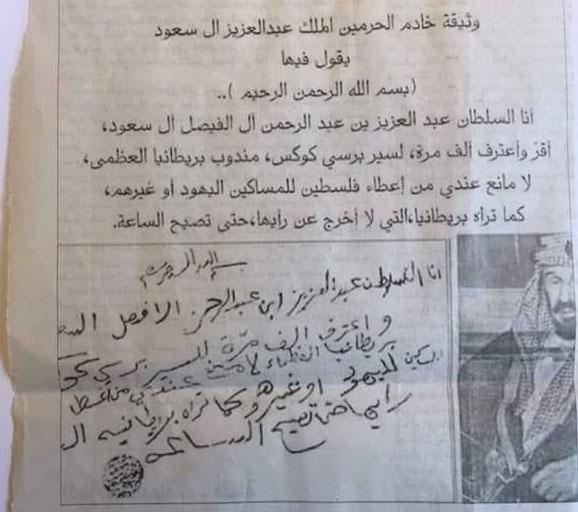 وثيقة خادم الحرمين الملك عبدالعزيز ال سعود
يقول فيها
(بسم الله الرحمن الرحيم )..
أنا السلطان عبد العزيز بن عبد الرحمن آل الفيصل آل سعود،
أقرّ وأعترف ألف مرة، لسير برسي كوكس، مندوب بريطانيا العظمى،
لا مانع عندي من إعطاء فلسطين للمساكين اليهود أو غيرهم،
كما تراه بريطانيا،التي لا أخرج عن رايها،حتى تصيح الساعة.
بسم الله الرحمن الرحيم
انا السلطان عبدالعزيز ابن عبدالرحمن الافصل السع
و اعترف الف مرة للسير برسي كو
بريطانيا العظماء لا مانع عندي من اعطا
المساكين لليهود او غيرهم وكما تراه بريطانيه ال
رايها حتى تصيح الساعه